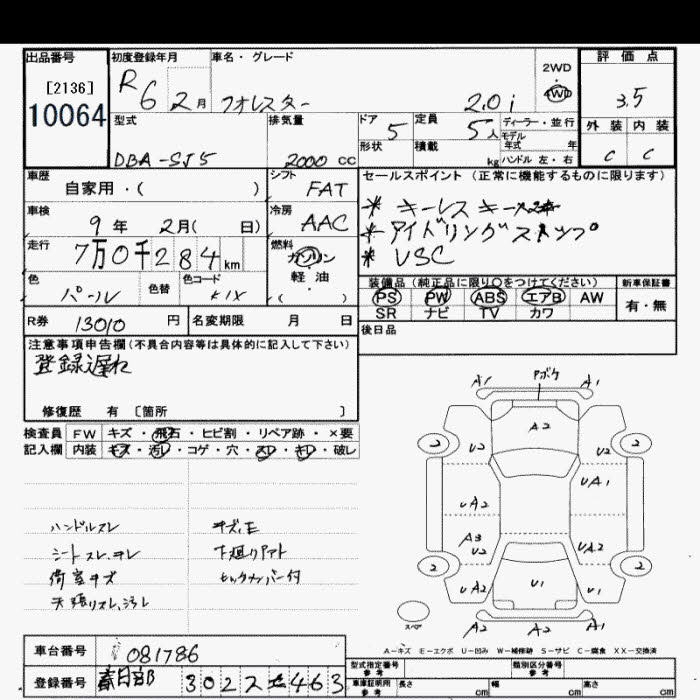 出品番号
[2136]
10064
初度登録年月
R6 2月
車名・グレード
フォレスター 2.0i
2WD
4WD
評価点
3.5
外装 内装
C C
型式
DBA-SJ5
排気量
2000 cc
ドア
5
定員
5人
形状
積載
kg
ディーラー・並行
モデル
年式 年
ハンドル 左・右
車歴
自家用・( )
シフト
FAT
車検
9年 2月( 日)
冷房
AAC
走行
7万0千284km
燃料
ガソリン
軽油
( )
色
パール
色替
色コード
K1X
セールスポイント(正常に機能するものに限ります)
* キーレスキー
* アイドリングストップ
* VSC
装備品(純正品に限り〇をつけてください)
PS PW ABS エアB AW
SR ナビ TV カワ
新車保証書
有・無
R券 13010円
名変期限 月 日
後日品
注意事項申告欄(不具合内容等は具体的に記入して下さい)
登録遅れ
修復歴 有 〔箇所 〕
検査員
記入欄
FW キズ・飛石・ヒビ割・リペア跡・×要
内装 キズ・汚レ・コゲ・穴・スレ・キレ・破レ
ハンドルスレ
シートスレ、ヨレ
荷室キズ
天張リスレ、汚レ
キズ、E
下廻リサビ
A1 Pボケ A1
A2
2 U2 U2 2
UA1
UA2
A3
U2
UA2
2 2
UA2 U1 U1
スペア
A2 A2
A-キズ E-エクボ U-凹み W-補修跡 S-サビ C-腐食 XX-交換済
車台番号
081786
登録番号
春日部 302 そ 463
型式指定番号
参考
類別区分番号
参考
車庫証明用
参考
長さ cm
幅 cm
高さ cm